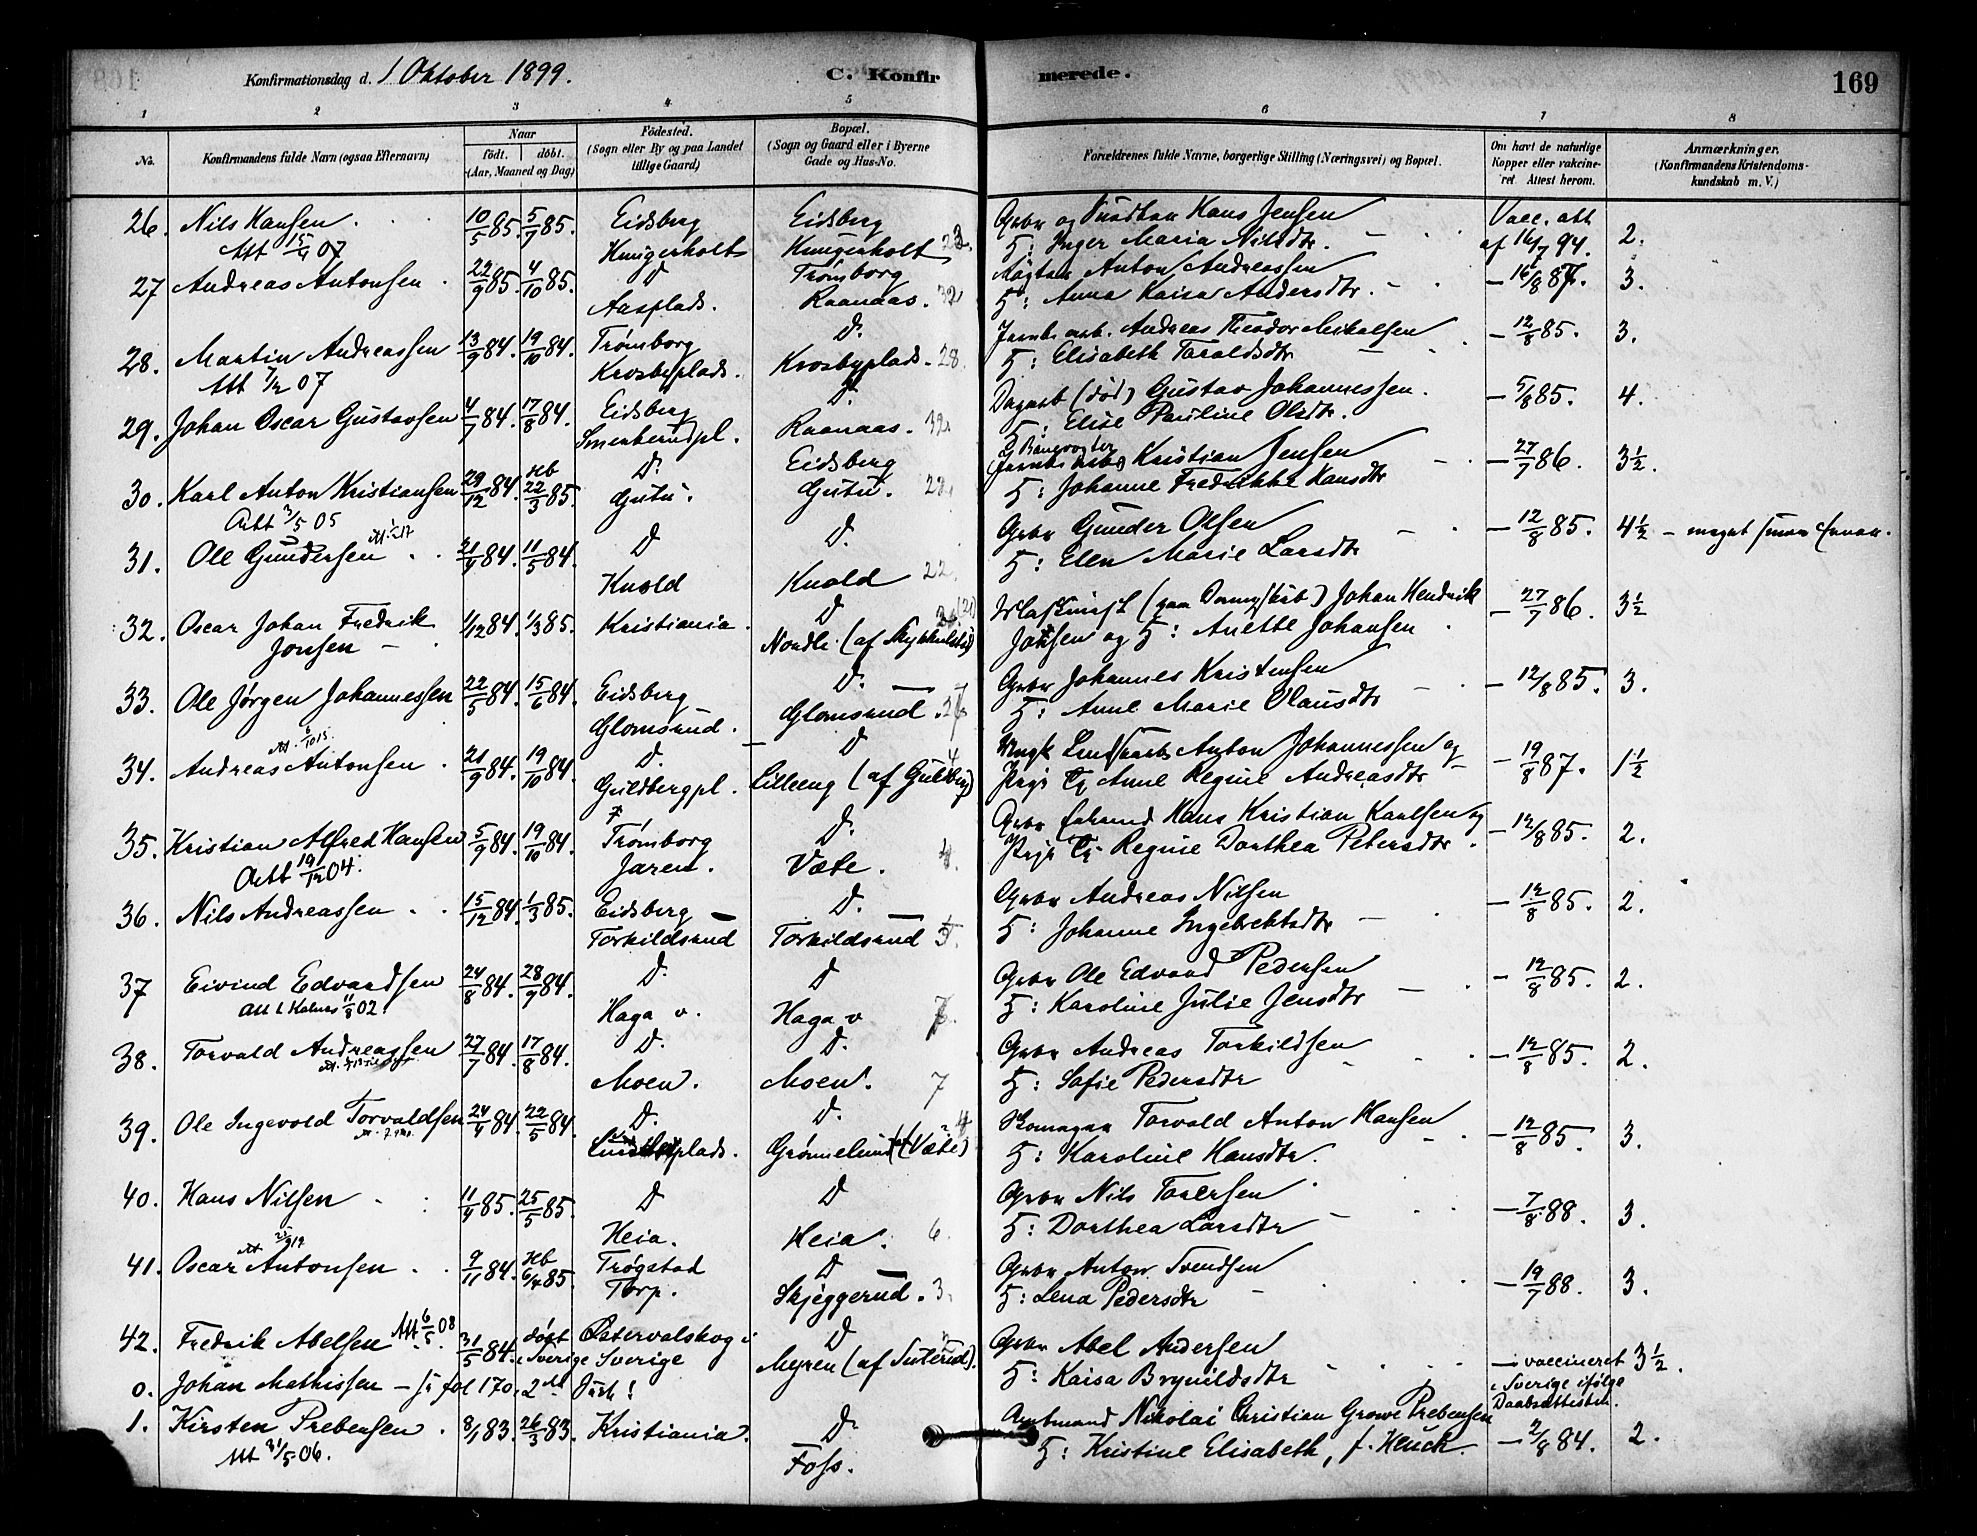 Konfirmationsdag d. 1 Oktober 1899. C. Konfirmerede. 169
1 2 3 4 5 6 7 8
No. Konfirmandens fulde Navn (ogsaa Efternavn) Naar født. døbt. (Aar, Maaned og Dag) Fødested. (Sogn eller By og paa Landet tillige Gaard) Bopæl. (Sogn og Gaard eller i Byerne Gade og Hus-No. Forældrenes fulde Navne, borgerlige Stilling (Næringsvei) og Bopæl. Om havt de naturlige Kopper eller vakcineret Attest herom. Anmærkninger. (Konfirmandens Kristendomskundskab m. V.)
26. Nils Hansen 10/5 85. 5/7 85. Eidsberg Eidsberg Gbr og Hans Jensen Vacc. att
Att 15/4 07 23. H: Inger Maria Nilsdtr. af 16/7 94. 2.
27 Andreas Antonsen 22/9 85. 4/10 85. D Trømborg Anton Andreassen 16/8 87. 3.
Aasplads. Raanaas. 32 H: Anna Kaisa Andersdtr.
28. Martin Andreassen 13/9 84. 19/10 84. Trømborg D. Jernb. arb. Andreas Theodor Mikalsen 12/8 85. 3.
Att 7/12 07 Krosbyplads. Krosbyplads. 28. H: Elisabeth Taraldsdtr
29. Johan Oscar Gustavsen 4/7 84. 17/8 84. Eidsberg D. Dagarb (død) Gustav Johannessen. 5/8 85. 4.
Raanaas. 32 H: Elise Pauline Olsdtr.
30. Karl Anton Kristiansen 29/12 84. Hb 22/3 85. D. Eidsberg Kristian Jensen 27/7 86. 3½.
Att 3/5 05 Gutu. Gutu. 22. H: Johanne Fredrikke Hansdtr
31. Ole Gundersen 21/4 84. 11/5 84. D D. Gbr Gunder Olsen 12/8 85. 4½ - meget
Knold Knold 22. H: Elen Marie Larsdtr
32. Oscar Johan Fredrik 1/12 84. 1/3 85. Kristiania. D Johan Hendrik 27/7 86. 3½
Jonsen Nordli (af Johnsen og H: Anette Johansen
33. Ole Jørgen Johannessen 22/5 84. 15/6 84. Eidsberg D. Gbr Johannes Kristensen 12/8 85. 3.
Glomsrud. Glomsrud. H: Anne Marie Olausdtr
34. Andreas Antonsen 21/9 84. 19/10 84. D. D Anton Johannessen og 19/8 87. 1½
Guldbergpl. Lilleeng (af Guldberg) Anne Regine Andreasdtr
35. Kristian Alfred Hansen 5/9 84. 19/10 84. Trømborg D. Hans Kristian Karlsen og 12/8 85. 2.
Att 19/12 04. Jaren. Væte. 4. Regine Dorthea Petersdtr
36. Nils Andreassen 15/12 84. 1/3 85. Eidsberg D. Gbr Andreas Nilsen 12/8 85. 2.
Torkildsrud Torkildsrud 5. H: Johanne Ingebrektsdtr
37 Eivind Edvardsen 24/8 84. 28/9 84. D. D Gbr Ole Edvard Pedersen 12/8 85. 2.
Haga v. Haga v 7. H: Karoline Julie Jensdtr
38. Torvald Andreassen 27/7 84. 17/8 84. D. D. Gbr Andreas Torkildsen 12/8 85. 2.
Moen. Moen. 7 H: Sofie Pedersdtr
39. Ole Ingevold Torvaldsen 24/4 84. 22/5 84. D. D. Torvald Anton Hansen 12/8 85. 3.
Grønnelund (Væte) H: Karoline Hansdtr.
40. Hans Nilsen 11/4 85. 25/5 85. D D Gbr Nils Torersen 7/8 88. 3.
Heia. Heia. 6. H: Dorthea Larsdtr
41. Oscar Antonsen 9/11 84. Hb 6/4 85. Trøgstad D Gbr Anton Svendsen 19/7 88. 3.
Torp. Skjeggerud. 3. H: Lena Pedersdtr
42. Fredrik Abelsen Att 6/5 08 31/5 84. døbt i Sverige Østervalskog i Sverige D Gbr Abel Andersen vaccineret 3½.
Myren (af Suterud). H: Kaisa Brynildsdtr i Sverige ifølge
0. Johan Mathissen fol 170. Daabsattesten.
1. Kirsten Prebensen 8/1 83. 26/3 83. Kristiania. D. Amtmand Nikolai Christian Grove Prebensen 2/8 84. 2.
Att 31/5 06. Foss. H: Kristine Elisabeth, f. Heuch